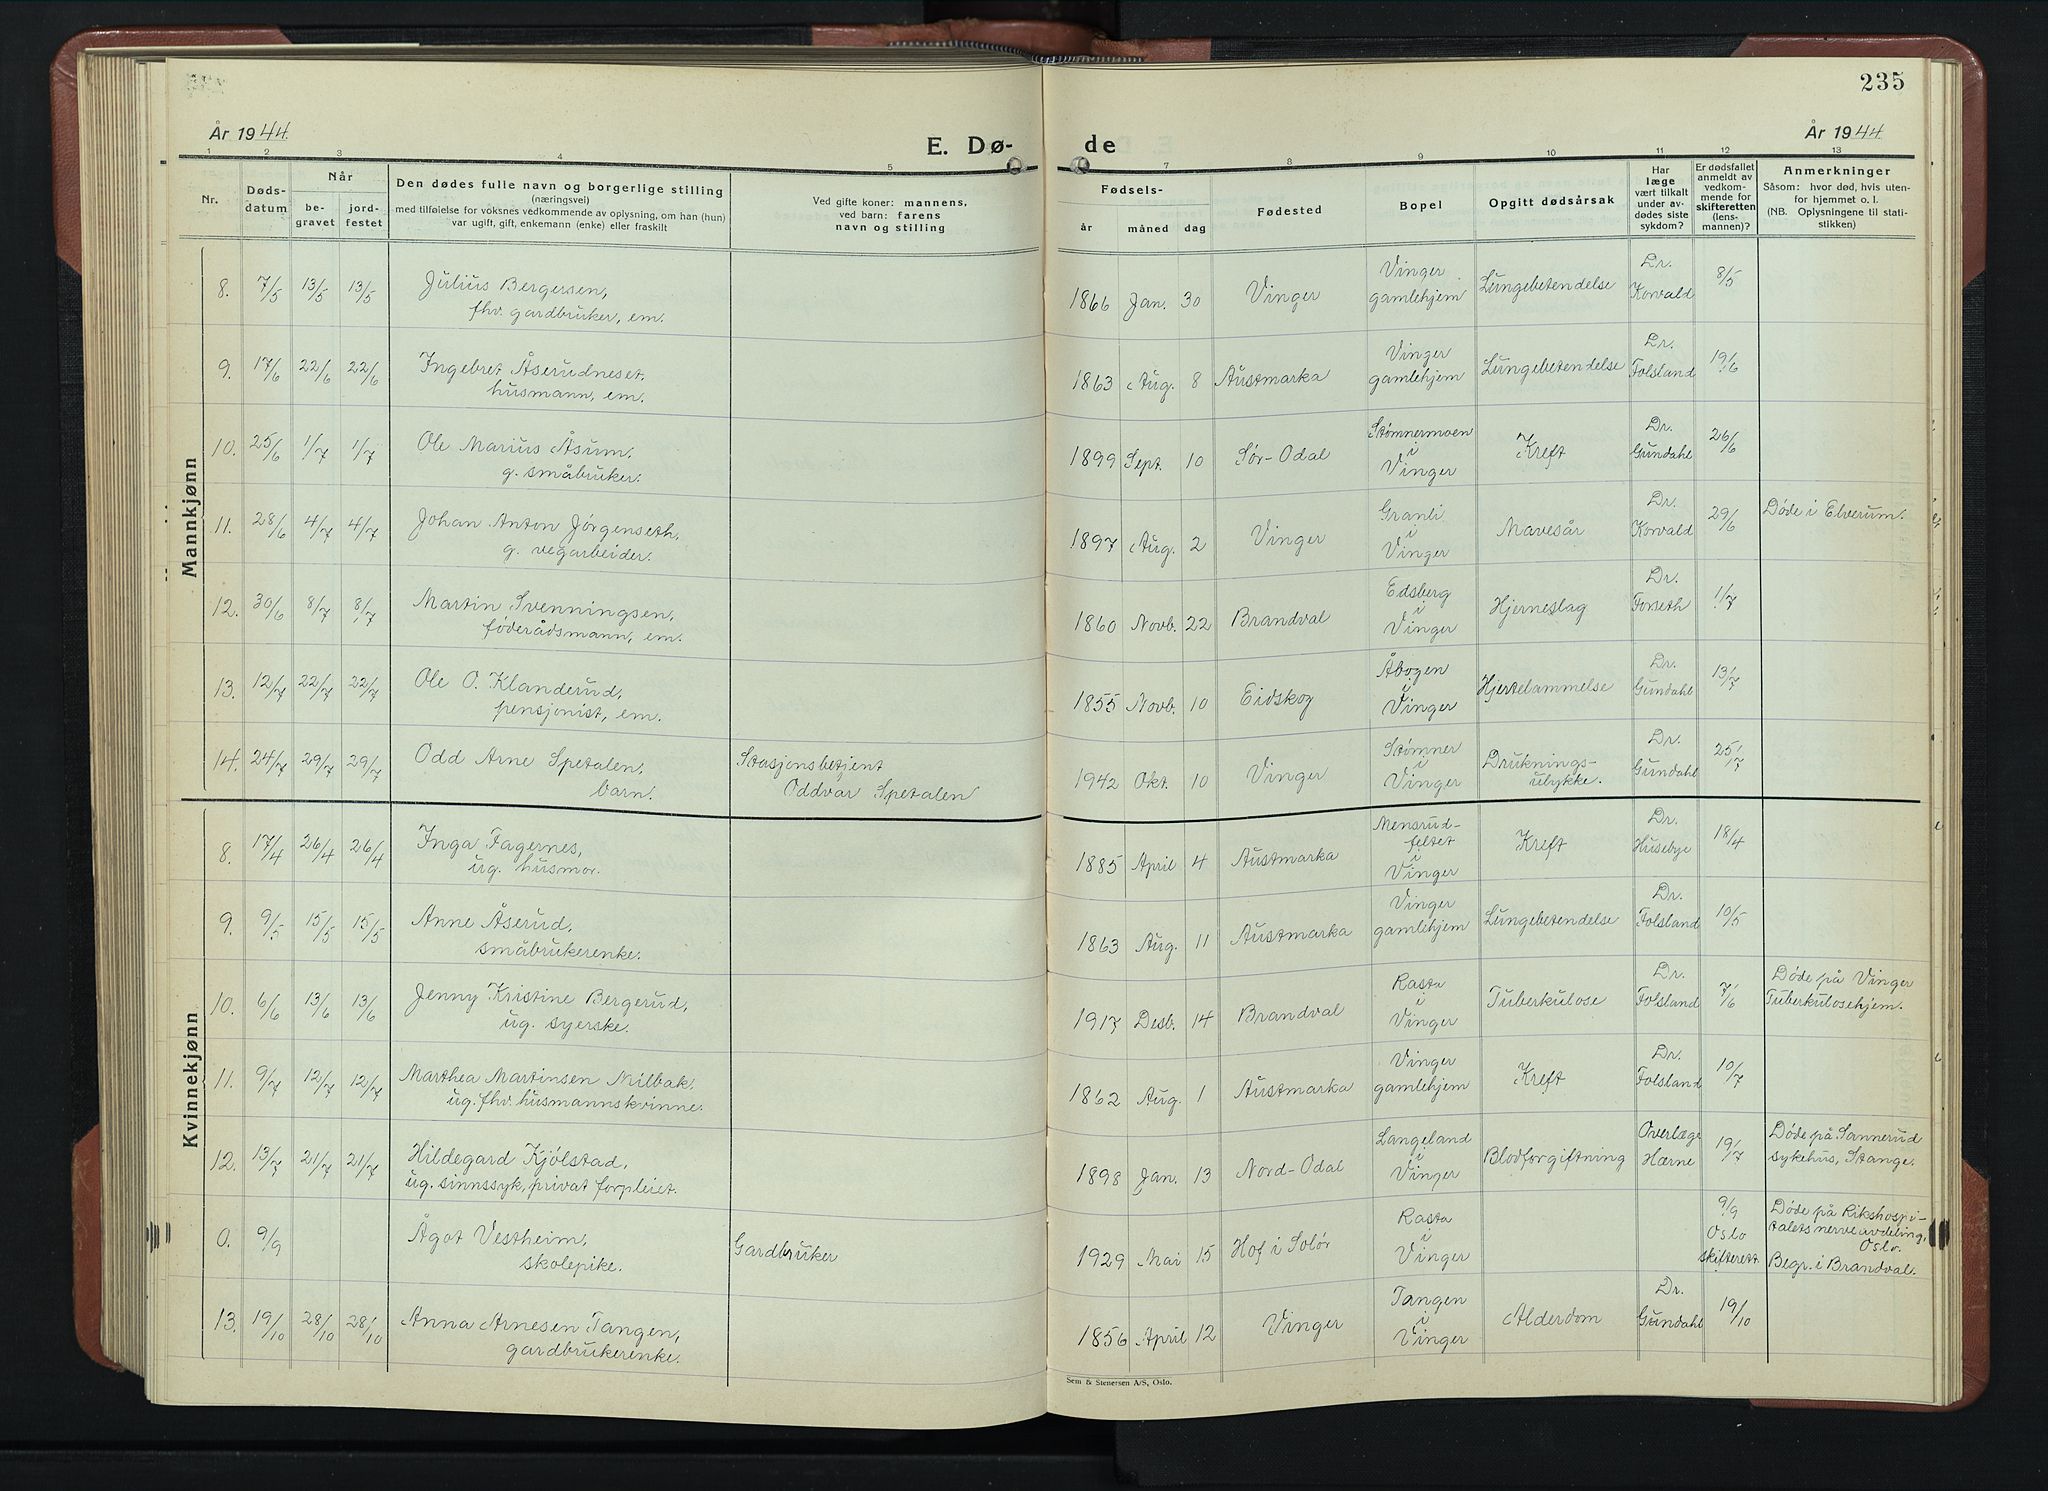 235
År 1944
E. Dø-
de
År 1944
1 2 3 4 5 7 8 9 10 11 12 13
Nr.
Døds-
datum
Når
be-
gravet
jord-
festet
Den dødes fulle navn og borgerlige stilling
(næringsvei)
med tilføielse for voksnes vedkommende av oplysning, om han (hun)
var ugift, gift, enkemann (enke) eller fraskilt
Ved gifte koner: mannens,
ved barn: farens
navn og stilling
Fødsels-
år måned dag
Fødested
Bopel
Opgitt dødsårsak
Har
læge
vært tilkalt
under av-
dødes siste
sykdom?
Er dødsfallet
anmeldt av
vedkom-
mende for
skifteretten
(lens-
mannen)?
Anmerkninger
Såsom: hvor død, hvis uten-
for hjemmet o. l.
(NB. Oplysningene til stati-
stikken)
Mannkjønn
8. 7/5 13/5 13/5 Julius Bergersen,
fhv. gardbruker, em.
1866 Jan. 30 Vinger
Vinger
gamlehjem
Lungebetendelse
Dr.
Korvald
8/5
9. 17/6 22/6 22/6 Ingebret Åserudneset.
husmann, em.
1863 Aug. 8 Austmarka
Vinger
gamlehjem
Lungebetendelse
Dr.
Folsland
19/6
10. 25/6 1/7 1/7 Ole Marius Åsum.
g. småbruker.
1899 Sept. 10 Sør-Odal
Stømnermoen
i
Vinger
Kreft
Dr.
Gundahl
26/6
11. 28/6 4/7 4/7 Johan Anton Jørgenseth.
g. vegarbeider.
1897 Aug. 2 Vinger
Granli
i
Vinger
Mavesår
Dr.
Korvald
29/6
Døde i Elverum.
12. 30/6 8/7 8/7 Martin Svenningsen,
føderådsmann, em.
1860 Novb. 22 Brandval
Edsberg
i
Vinger
Hjerneslag
Dr.
Forseth
1/7
13. 12/7 22/7 22/7 Ole O. Klanderud,
pensjonist, em.
1855 Novb. 10 Eidskog
Åbogen
i
Vinger
Hjertelammelse
Dr.
Gundahl
13/7
14. 24/7 29/7 29/7 Odd Arne Spetalen,
barn.
Stasjonsbetjent
Oddvar Spetalen
1942 Okt. 10 Vinger
Stømner
i
Vinger
Druknings-
ulykke.
Dr.
Gundahl
25/7
Kvinnekjønn
8. 17/4 26/4 26/4 Inga Fagernes,
ug. husmor.
1885 April 4 Austmarka
Mensrud-
feltet
i
Vinger
Kreft
Dr.
Husebye
18/4
9. 9/5 15/5 15/5 Anne Åserud,
småbrukerenke.
1863 Aug. 11 Austmarka
Vinger
gamlehjem
Lungebetendelse
Dr.
Folsland
10/5
10. 6/6 13/6 13/6 Jenny Kristine Bergerud,
ug. syerske.
1917 Desb. 14 Brandval
Rasta
i
Vinger
Tuberkulose
Dr.
Folsland
7/6
Døde på Vinger
Tuberkulosehjem.
11. 9/7 12/7 12/7 Marthea Martinsen Milbak.
ug. fhv. husmannskvinne.
1862 Aug. 1 Austmarka
Vinger
gamlehjem
Kreft
Dr.
Folsland
10/7
12. 13/7 21/7 21/7 Hildegard Kjølstad,
ug. sinnssyk, privat forpleiet.
1898 Jan. 13 Nord-Odal
Langeland
i
Vinger
Blodforgiftning
Overlæge
Hærne
19/7
Døde på Sannerud
sykehus, Stange.
0. 9/9 Ågot Vestheim,
skolepike.
Gardbruker
1929 Mai 15 Hof i Solør
Rasta
i
Vinger
9/9
Oslo
skifterett.
Døde på Rikshospi-
talets nerveavdeling,
Oslo.
Begr. i Brandval.
13. 19/10 28/10 28/10 Anna Arnesen Tangen,
gardbrukerenke.
1856 April 12 Vinger
Tangen
i
Vinger
Alderdom
Dr.
Gundahl
19/10
Sem & Stenersen A/S, Oslo.